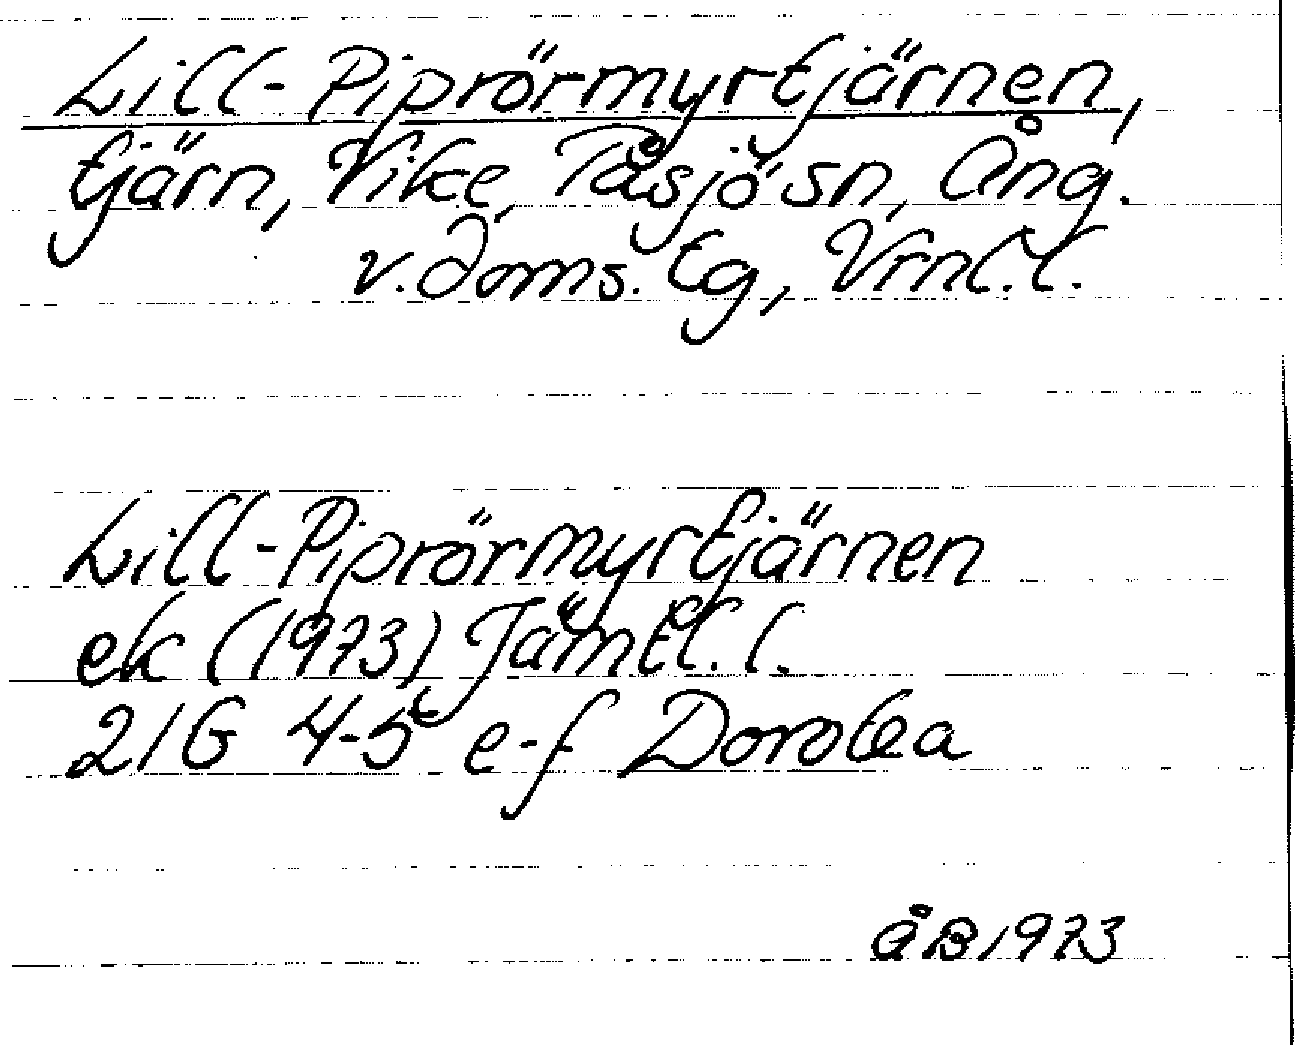 Lill-Piprörmyrtjärnen,
tjärn, Vike, Tåsjö sn, Ång.
v. doms. tg, Vrnl. l.
Lill-Piprörmyrtjärnen
ek (1973) Jämtl. l.
21G 4-5 e-f Dorotea
ÅB 1973